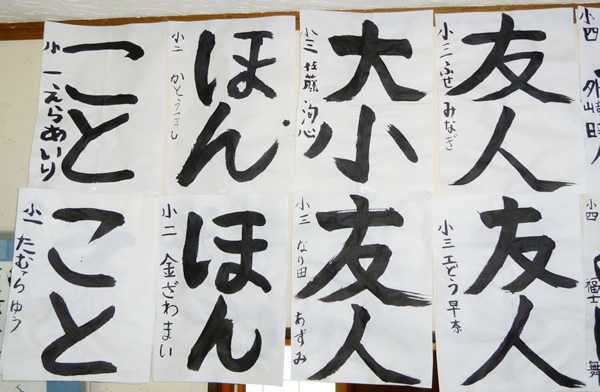 こと
小一 えらあいり
ほん
小二
大小
小三 佐藤 洵心
友人
小三 ふせ みなぎ
小四 外崎
こと
小一 たむら ゆう
ほん
小二 金ざわまい
友人
小三 なり田 あずみ
友人
小三 工どう 早奈
小四 福士 舞